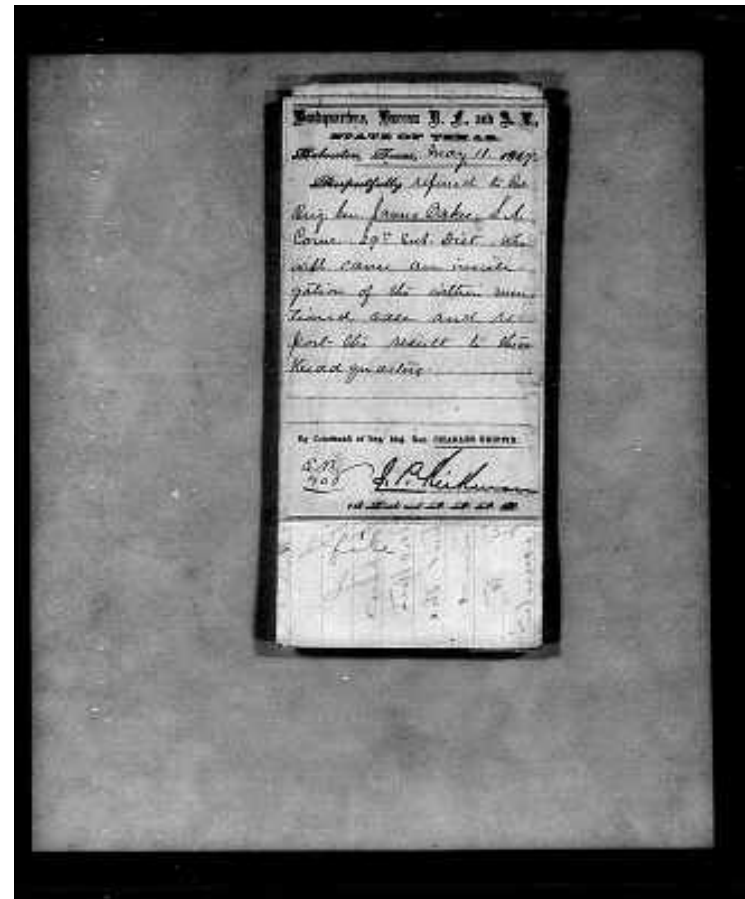 Headquarters, Bureau R. F. and A. L.,
STATE OF TEXAS.
Galveston, Texas, May 11 1867
Respectfully referred to Bvt
Brig Gen James Oakes, S.A.
Comr. 29th Sub. Dist. who
will cause an investi
gation of the within men
tioned case and re
port the result to these
Headquarters
By Command of Bvt. Maj. Gen. CHARLES GRIFFIN.
E.M.
J. P. Kirkman
file